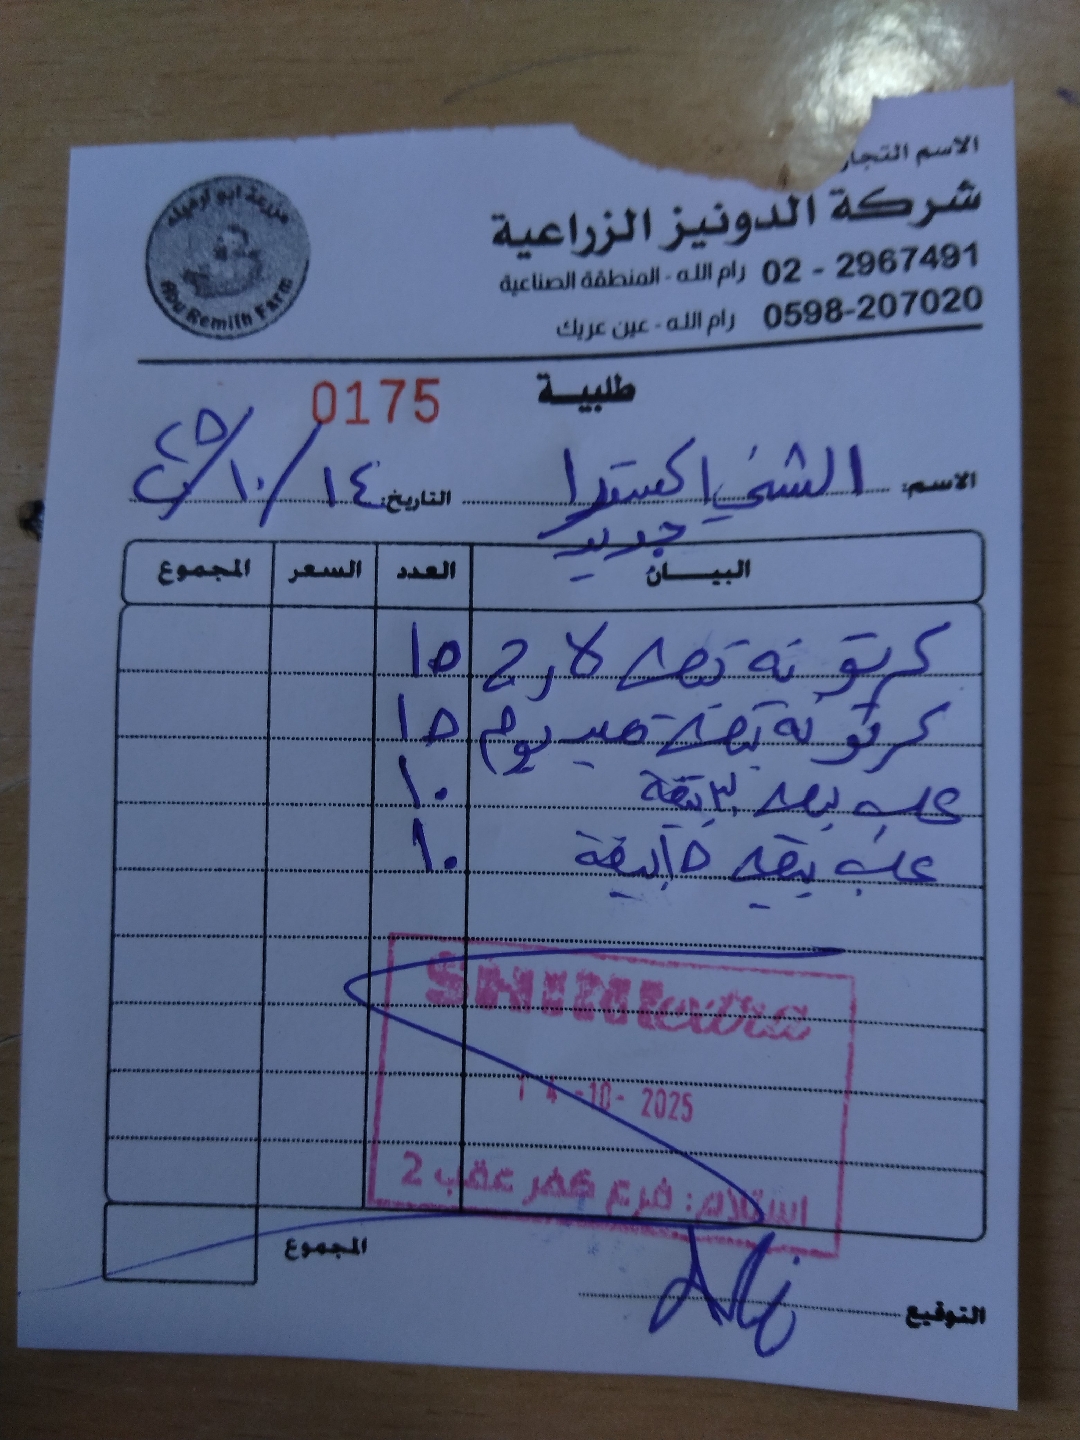 الاسم التجار
شركة الدونيز الزراعية
02 - 2967491 رام الله - المنطقة الصناعية
0598-207020 رام الله - عين عريك
مزرعة ابو ارميله
Abu Remilh Farm
طلبية
0175
الاسم: الشني اكسترا
جديد
التاريخ: ١٤/١٠/٢٥
البيــــان العدد السعر المجموع
كرتونة بيض لارج ١٥
كرتونة بيض ميديوم ١٥
علب بيض ٣ بيضة ١٠
علب بيض ١٥ بيضة ١٠
SHINI extra
14-10-2025
استلام: فرع كفر عقب 2
المجموع
التوقيع